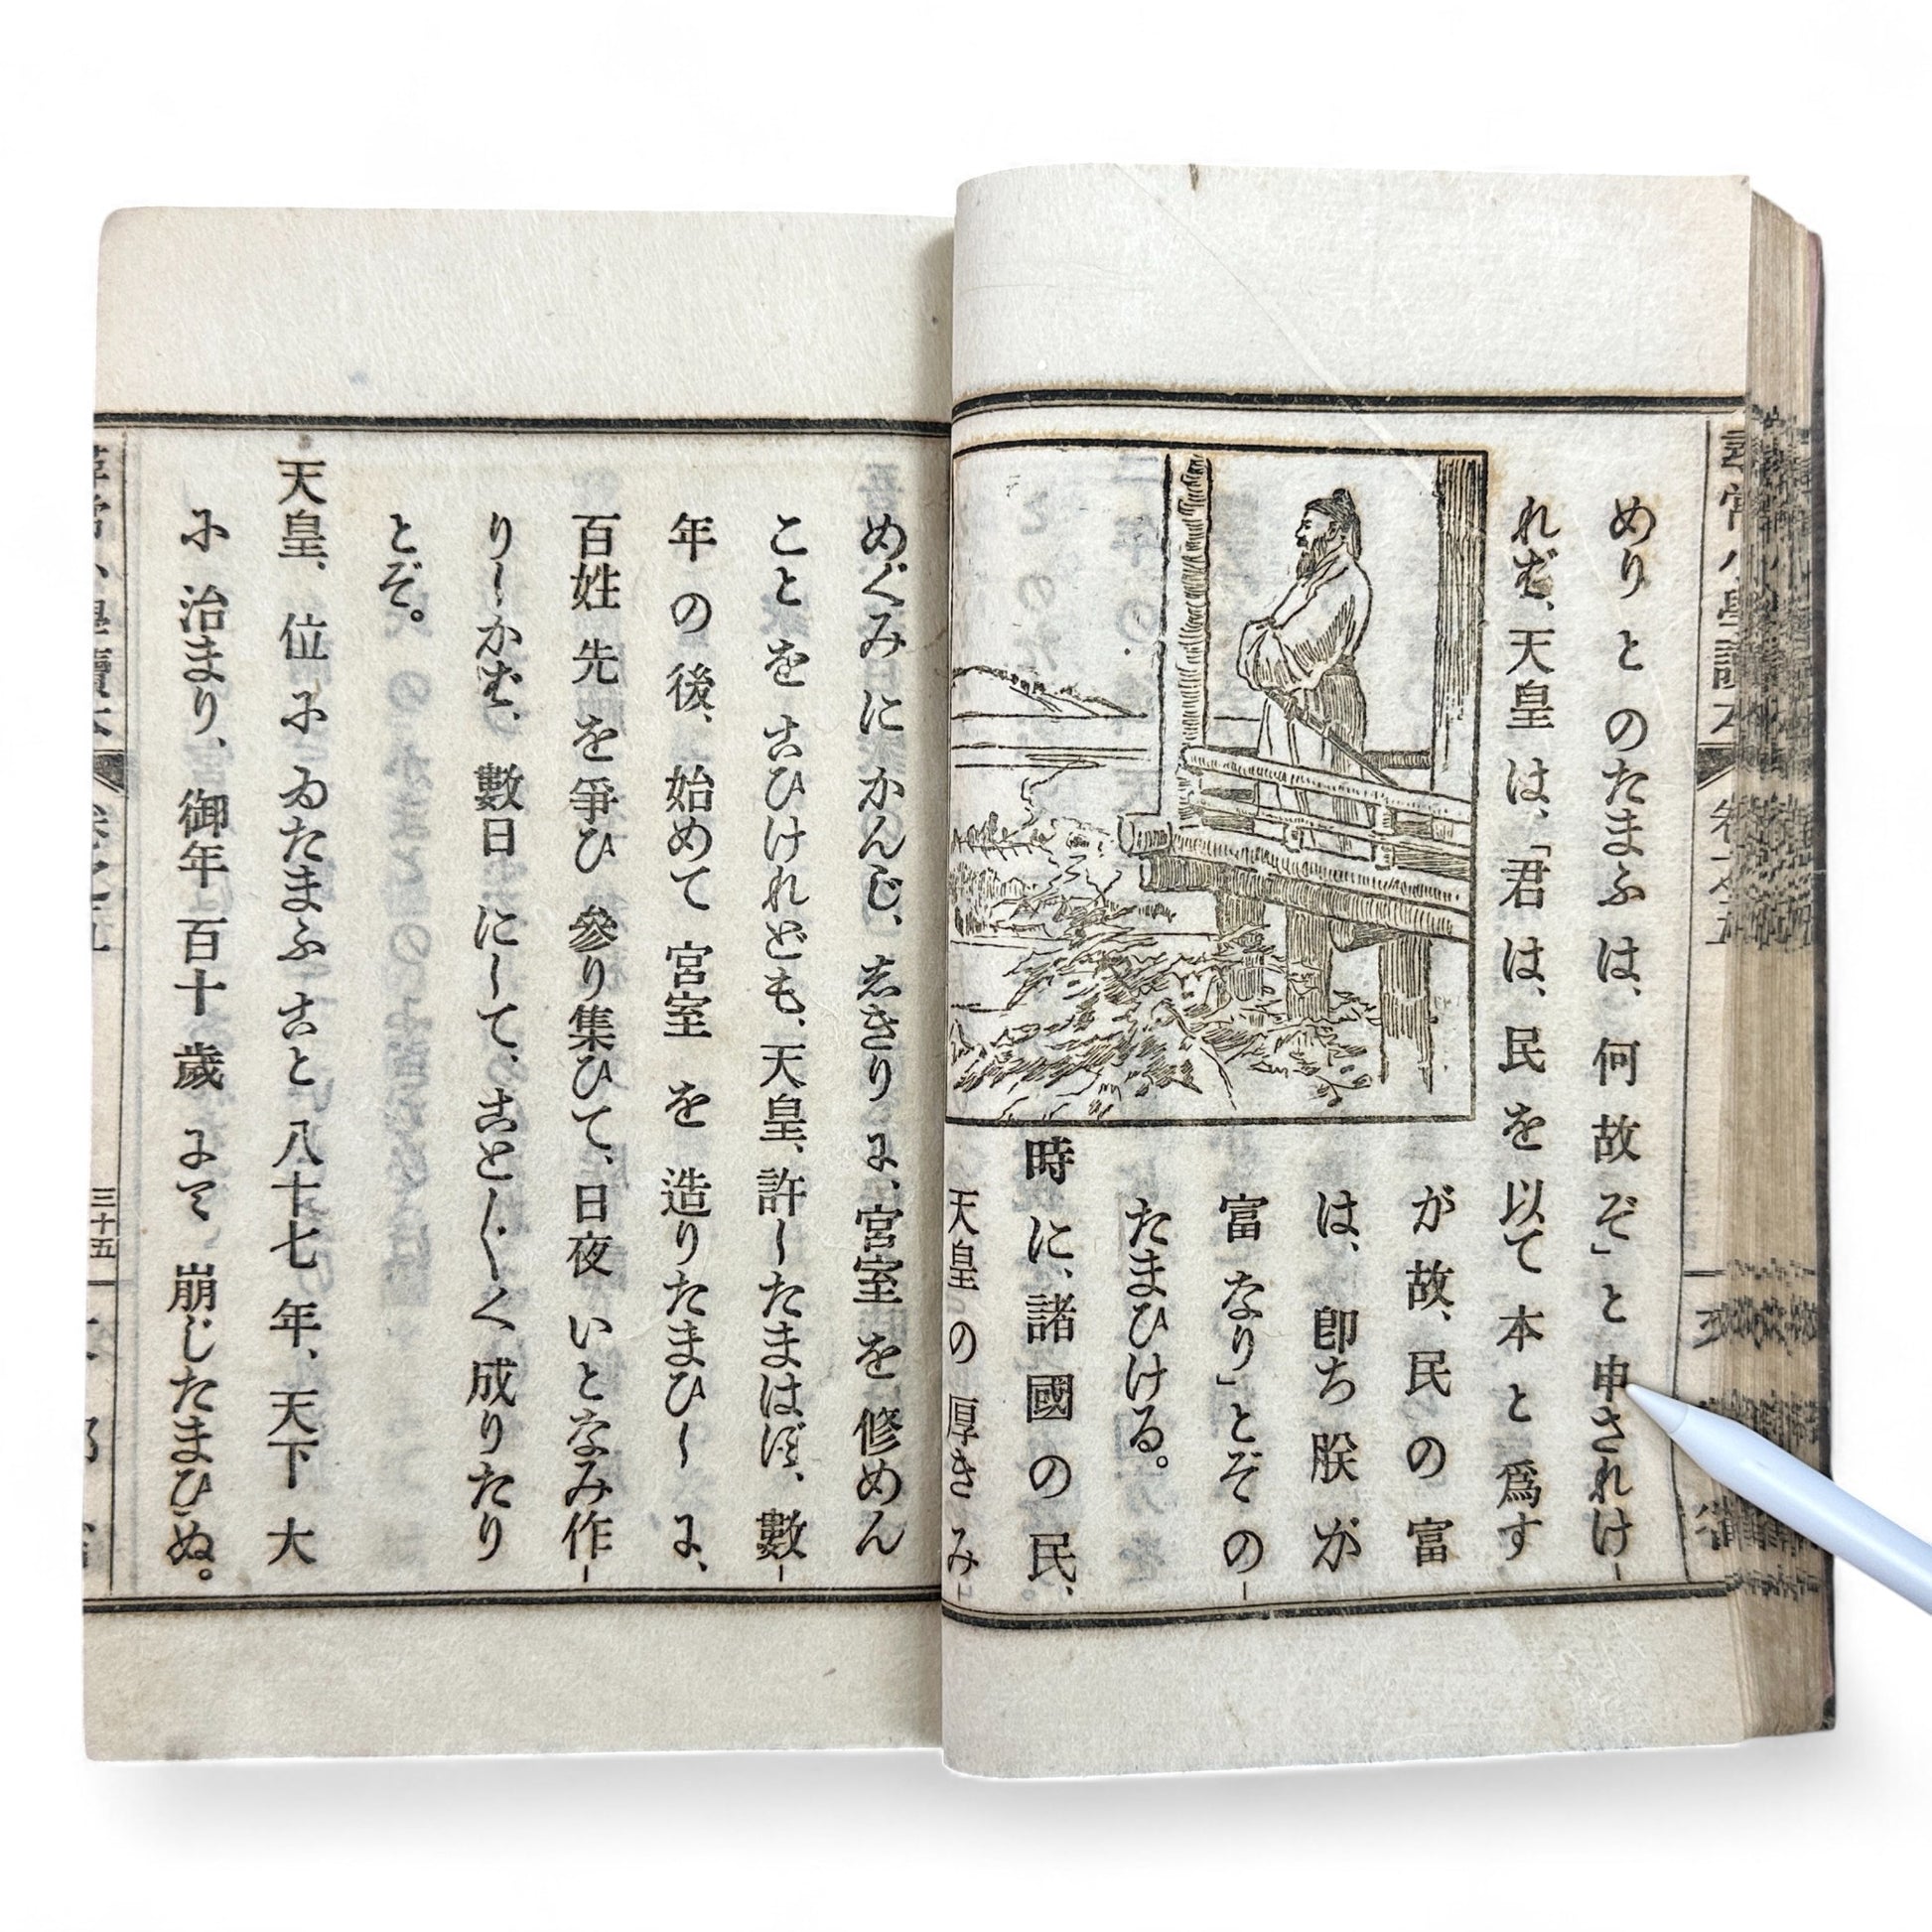 尋常小學讀本 卷之五
めりとのたまふは、何故ぞ」と申されけ-
れば、天皇は、「君は、民を以て本と爲す
が故、民の富
は、卽ち朕が
富なり」とぞの-
たまひける。
時に、諸國の民、
天皇の厚きみ-
めぐみにかんじ、しきりに、宮室を修めん
ことをこひけれども、天皇、許したまはず、數-
年の後、始めて宮室を造りたまひしに、
百姓先を爭ひ參り集ひて、日夜いとなみ作-
りしかば、數日にして、こと〲く成りたり
とぞ。
天皇、位にゐたまふこと八十七年、天下大
に治まり、御年百十歲にて崩じたまひぬ。
尋常小學讀本 卷之五 三十五